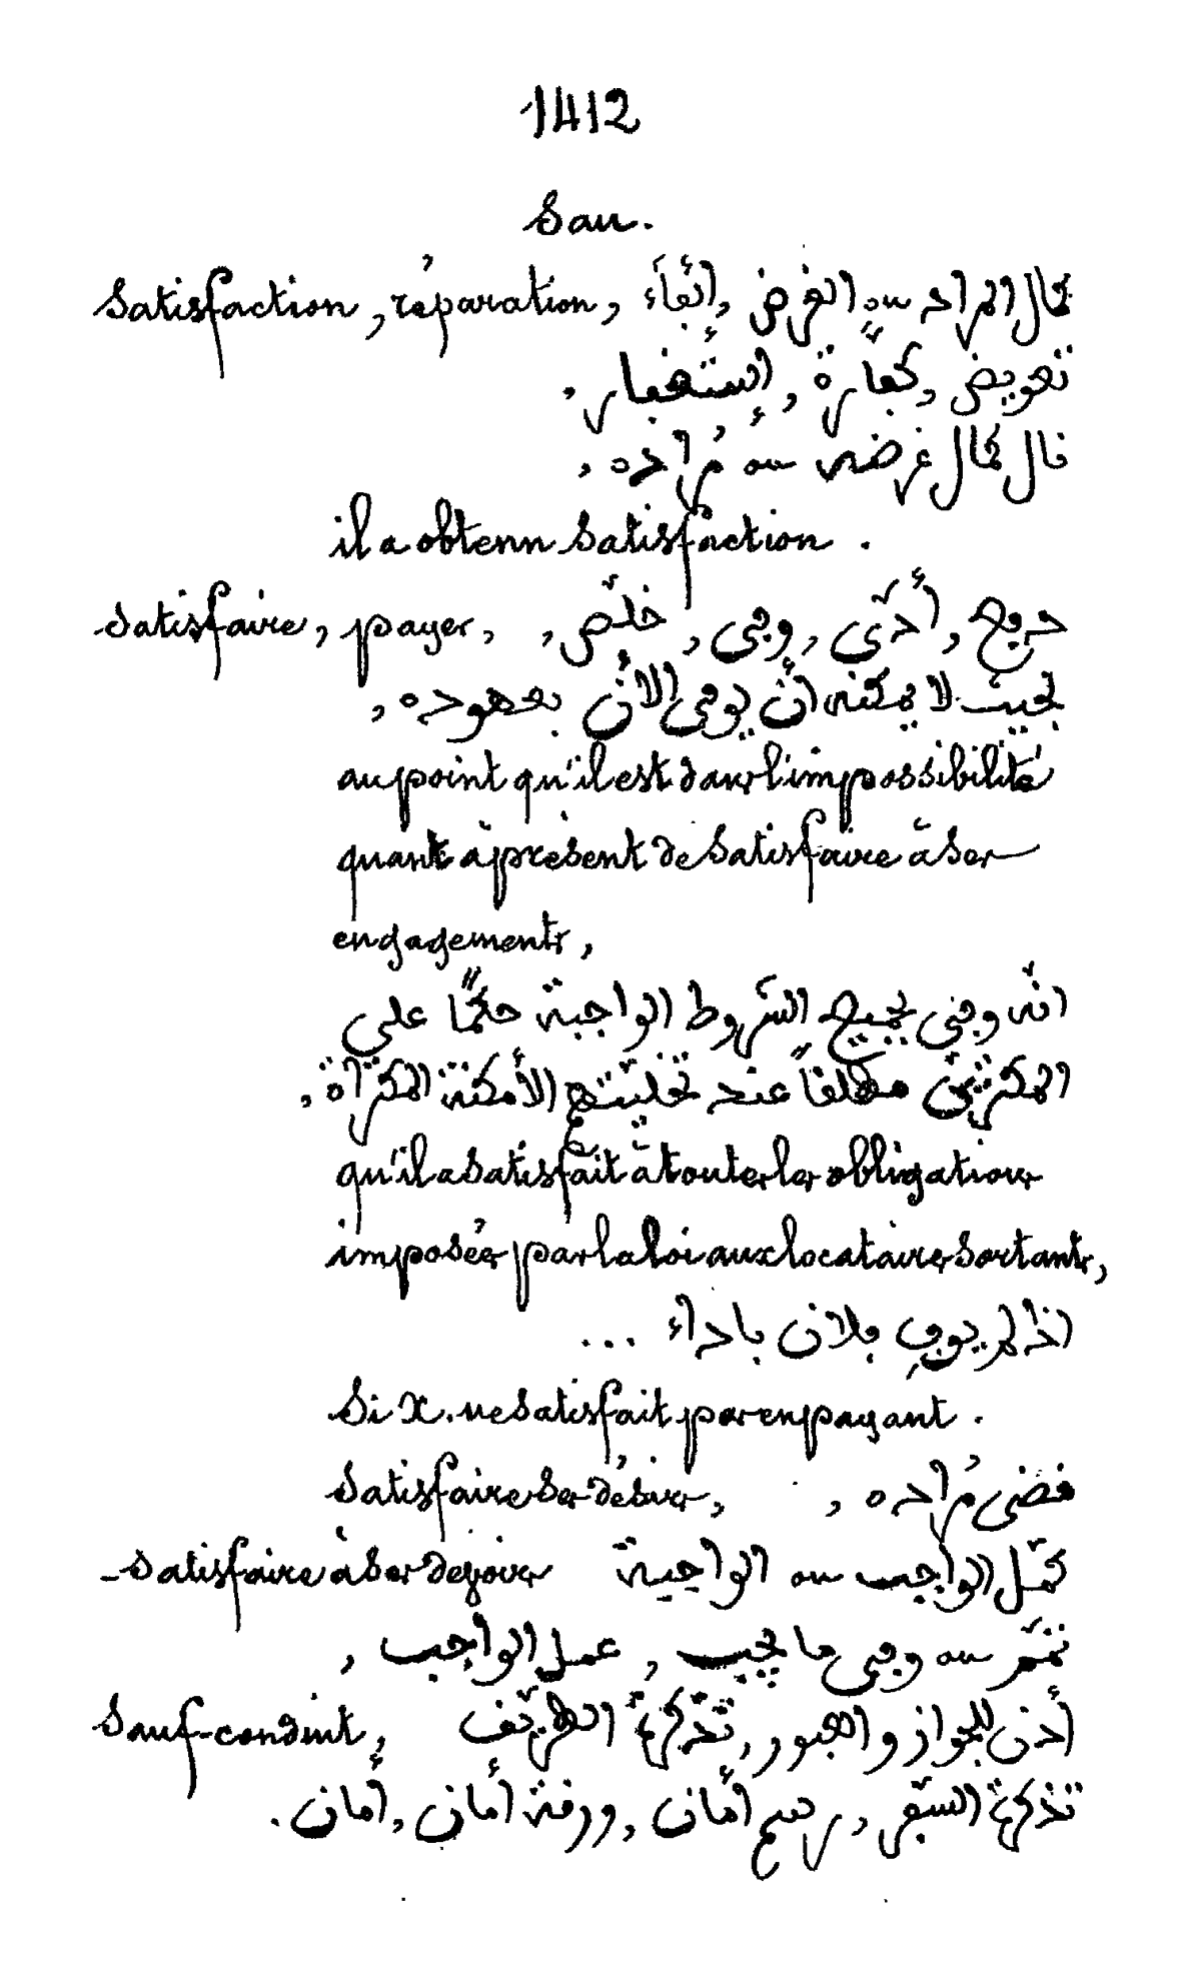 1412
Sau.
Satisfaction, réparation, كمال المراد سه الغرض, إيفاء,
تعويض, كفارة, إستغفار,
نال كمال غرضه سه مُراده,
il a obtenu satisfaction.
Satisfaire, payer, دفع, أدّى, وفى, خلّص,
بحيث لا يمكنه أن يوفى الأن بعهوده,
au point qu'il est dans l'impossibilité
quant à présent de satisfaire à ses
engagements,
انّه وفى بجميع الشروط الواجبة حكمًا على
المكتريين مطلقاً عند تخليتهم الأمكنة المكتراة,
qu'il a satisfait à toutes les obligations
imposées par la loi aux locataires sortants,
اذا لم يوفِ فلان باداء ...
Si X. ne satisfait pas en payant.
Satisfaire ses désirs, قضى مُراده,
-Satisfaire à ses devoirs كمّل الواجب سه الواجبة
تمّم سه وفى ما يجب, عمل الواجب,
Sauf-conduit, أذن للجواز والعبور, تذكرة الطريق
تذكرة السفر, رسم أمان, ورقة أمان, أمان.